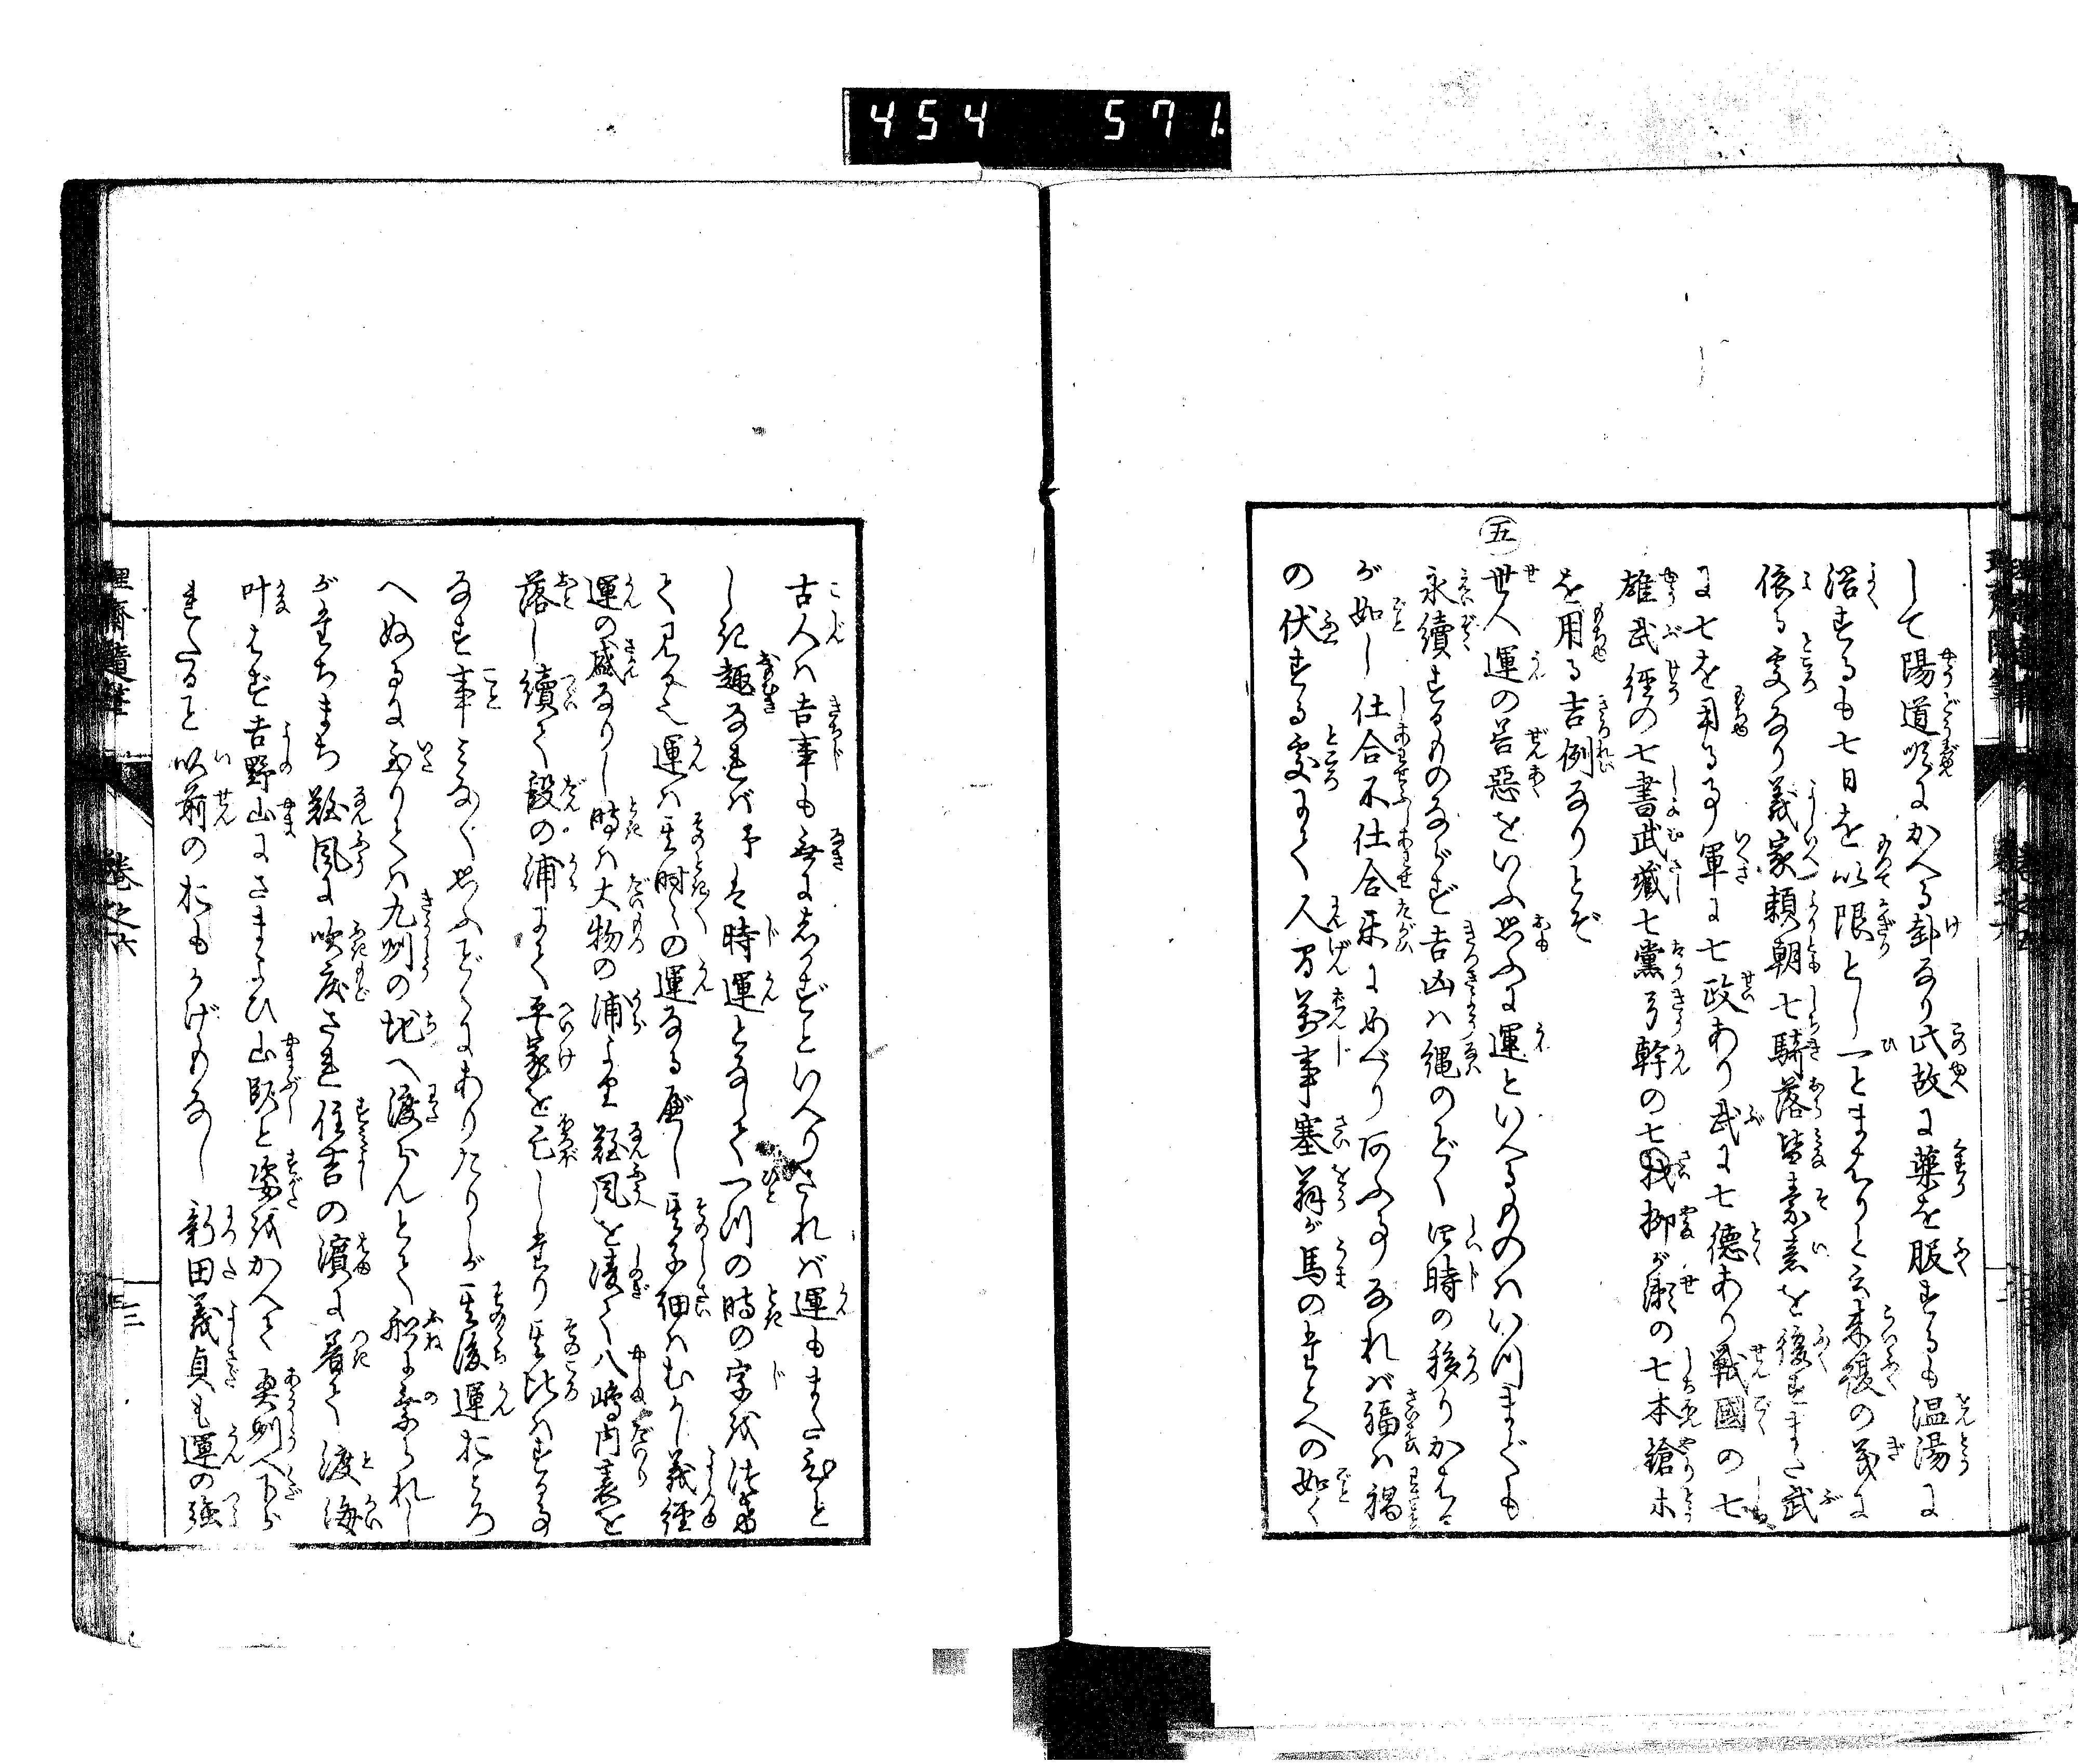 454 571
して陽道順にかへる卦なり此故に薬を服するも温湯に
浴するも七日を以限とし一とまはりと云来復の義に
依る処なり義家頼朝七騎落皆素意を復すまた武
に七を用る事軍に七政あり武に七徳あり戦國の七
雄武経の七書武蔵七黨弓幹の七我柳が瀬の七本鎗
を用る吉例なりとぞ
五
世人運の善悪をいふ思ふに運といへるものはいつまでも
永續するものならず吉凶は縄のごとく四時の移りかはる
が如し仕合不仕合互にめぐり
なれば福は禍
の伏する処にて人間萬事塞翁が馬のたとへの如く
古人は吉事も無にしかずといへりされば運もまたひと
しき趣なれば予は時運となして一つの時の字を
て見る也運は其時々の運なる歟し其子細はむかし義経
運の盛なりし時は大物の浦より難風を凌て八嶋内裏を
落し續て壇の浦にて平家を亡しけり其比はする事
なす事みなみな思ふごとくにありたりしが其後運おとろ
へぬるに至りては九州の地へ渡らんとて船に乗られし
がたちまち難風に吹戻され住吉の濱に着て渡海
叶はず吉野山にさまよひ山臥と姿をかへて奥州へ下ら
れたること以前のおもかげもなし新田義貞も運の強
理齋随筆
巻之六
三